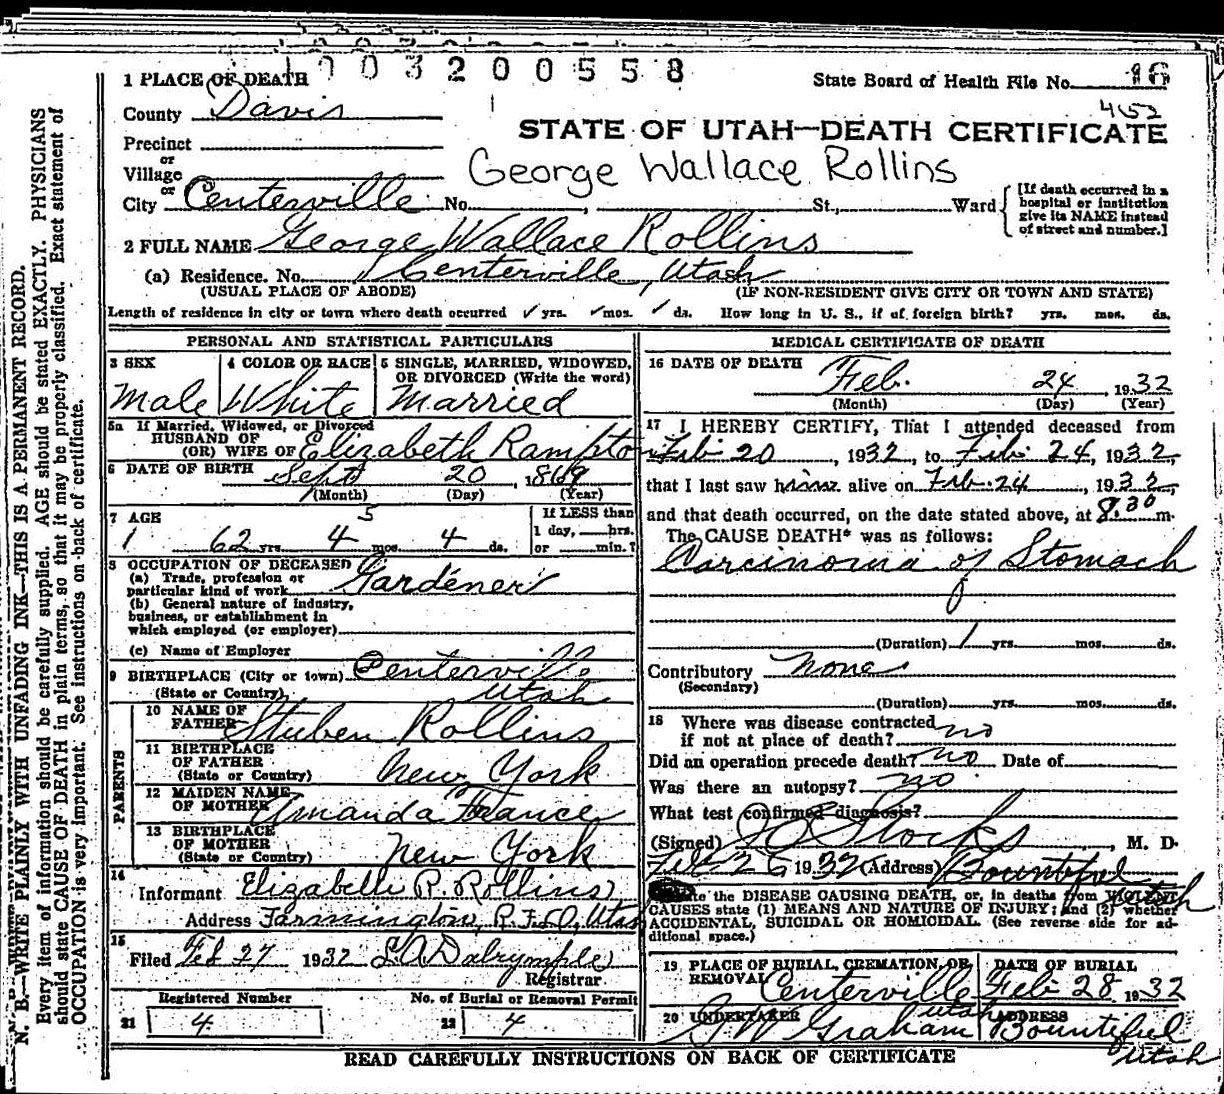 1003200558
1 PLACE OF DEATH
State Board of Health File No. 16
County Davis
4152
STATE OF UTAH—DEATH CERTIFICATE
Precinct
or
Village
George Wallace Rollins
or
City Centerville No. , St., Ward
[If death occurred in a hospital or institution give its NAME instead of street and number.]
2 FULL NAME George Wallace Rollins
(a) Residence. No. Centerville, Utah
(USUAL PLACE OF ABODE) (IF NON-RESIDENT GIVE CITY OR TOWN AND STATE)
Length of residence in city or town where death occurred ✓ yrs. ✓ mos. ✓ ds. How long in U. S., if of foreign birth? yrs. mos. ds.
PERSONAL AND STATISTICAL PARTICULARS
3 SEX
Male
4 COLOR OR RACE
White
5 SINGLE, MARRIED, WIDOWED,
OR DIVORCED (Write the word)
Married
5a If Married, Widowed, or Divorced
HUSBAND OF
(OR) WIFE OF Elizabeth Rampton
6 DATE OF BIRTH Sept 20, 1869
(Month) (Day) (Year)
7 AGE
5
1 62 yrs. 4 mos. 4 ds.
If LESS than
1 day, hrs.
or min.?
8 OCCUPATION OF DECEASED
(a) Trade, profession or
particular kind of work Gardener
(b) General nature of industry,
business, or establishment in
which employed (or employer)
(c) Name of Employer
9 BIRTHPLACE (City or town) Centerville
(State or Country) Utah
PARENTS
10 NAME OF
FATHER Stuben Rollins
11 BIRTHPLACE
OF FATHER
(State or Country) New York
12 MAIDEN NAME
OF MOTHER Amanda France
13 BIRTHPLACE
OF MOTHER
(State or Country) New York
14
Informant Elizabeth R. Rollins
Address Farmington, R.F.D., Utah
15
Filed Feb 27 1932 L.A. Dalrymple
Registrar
Registered Number
21 4
No. of Burial or Removal Permit
22 4
MEDICAL CERTIFICATE OF DEATH
16 DATE OF DEATH Feb. 24 1932
(Month) (Day) (Year)
17 I HEREBY CERTIFY, That I attended deceased from
Feb 20, 1932, to Feb 24, 1932,
that I last saw him alive on Feb. 24, 1932,
and that death occurred, on the date stated above, at 8.30 m.
The CAUSE DEATH* was as follows:
Carcinoma of Stomach
(Duration) 1 yrs. mos. ds.
Contributory None
(Secondary)
(Duration) yrs. mos. ds.
18 Where was disease contracted
if not at place of death? no
Did an operation precede death? no Date of
Was there an autopsy? no
What test confirmed diagnosis?
(Signed) Stocks, M. D.
Feb 26 1932 (Address) Bountiful
Utah
te the DISEASE CAUSING DEATH, or, in deaths from
CAUSES state (1) MEANS AND NATURE OF INJURY; and (2) whether
ACCIDENTAL, SUICIDAL OR HOMICIDAL. (See reverse side for ad-
ditional space.)
19 PLACE OF BURIAL, CREMATION, OR
REMOVAL Centerville
Utah
DATE OF BURIAL
Feb 28 1932
20 UNDERTAKER
Graham
ADDRESS
Bountiful
Utah
READ CAREFULLY INSTRUCTIONS ON BACK OF CERTIFICATE
N. B.—WRITE PLAINLY WITH UNFADING INK—THIS IS A PERMANENT RECORD.
Every item of information should be carefully supplied. AGE should be stated EXACTLY. PHYSICIANS
should state CAUSE OF DEATH in plain terms, so that it may be properly classified. Exact statement of
OCCUPATION is very important. See instructions on back of certificate.